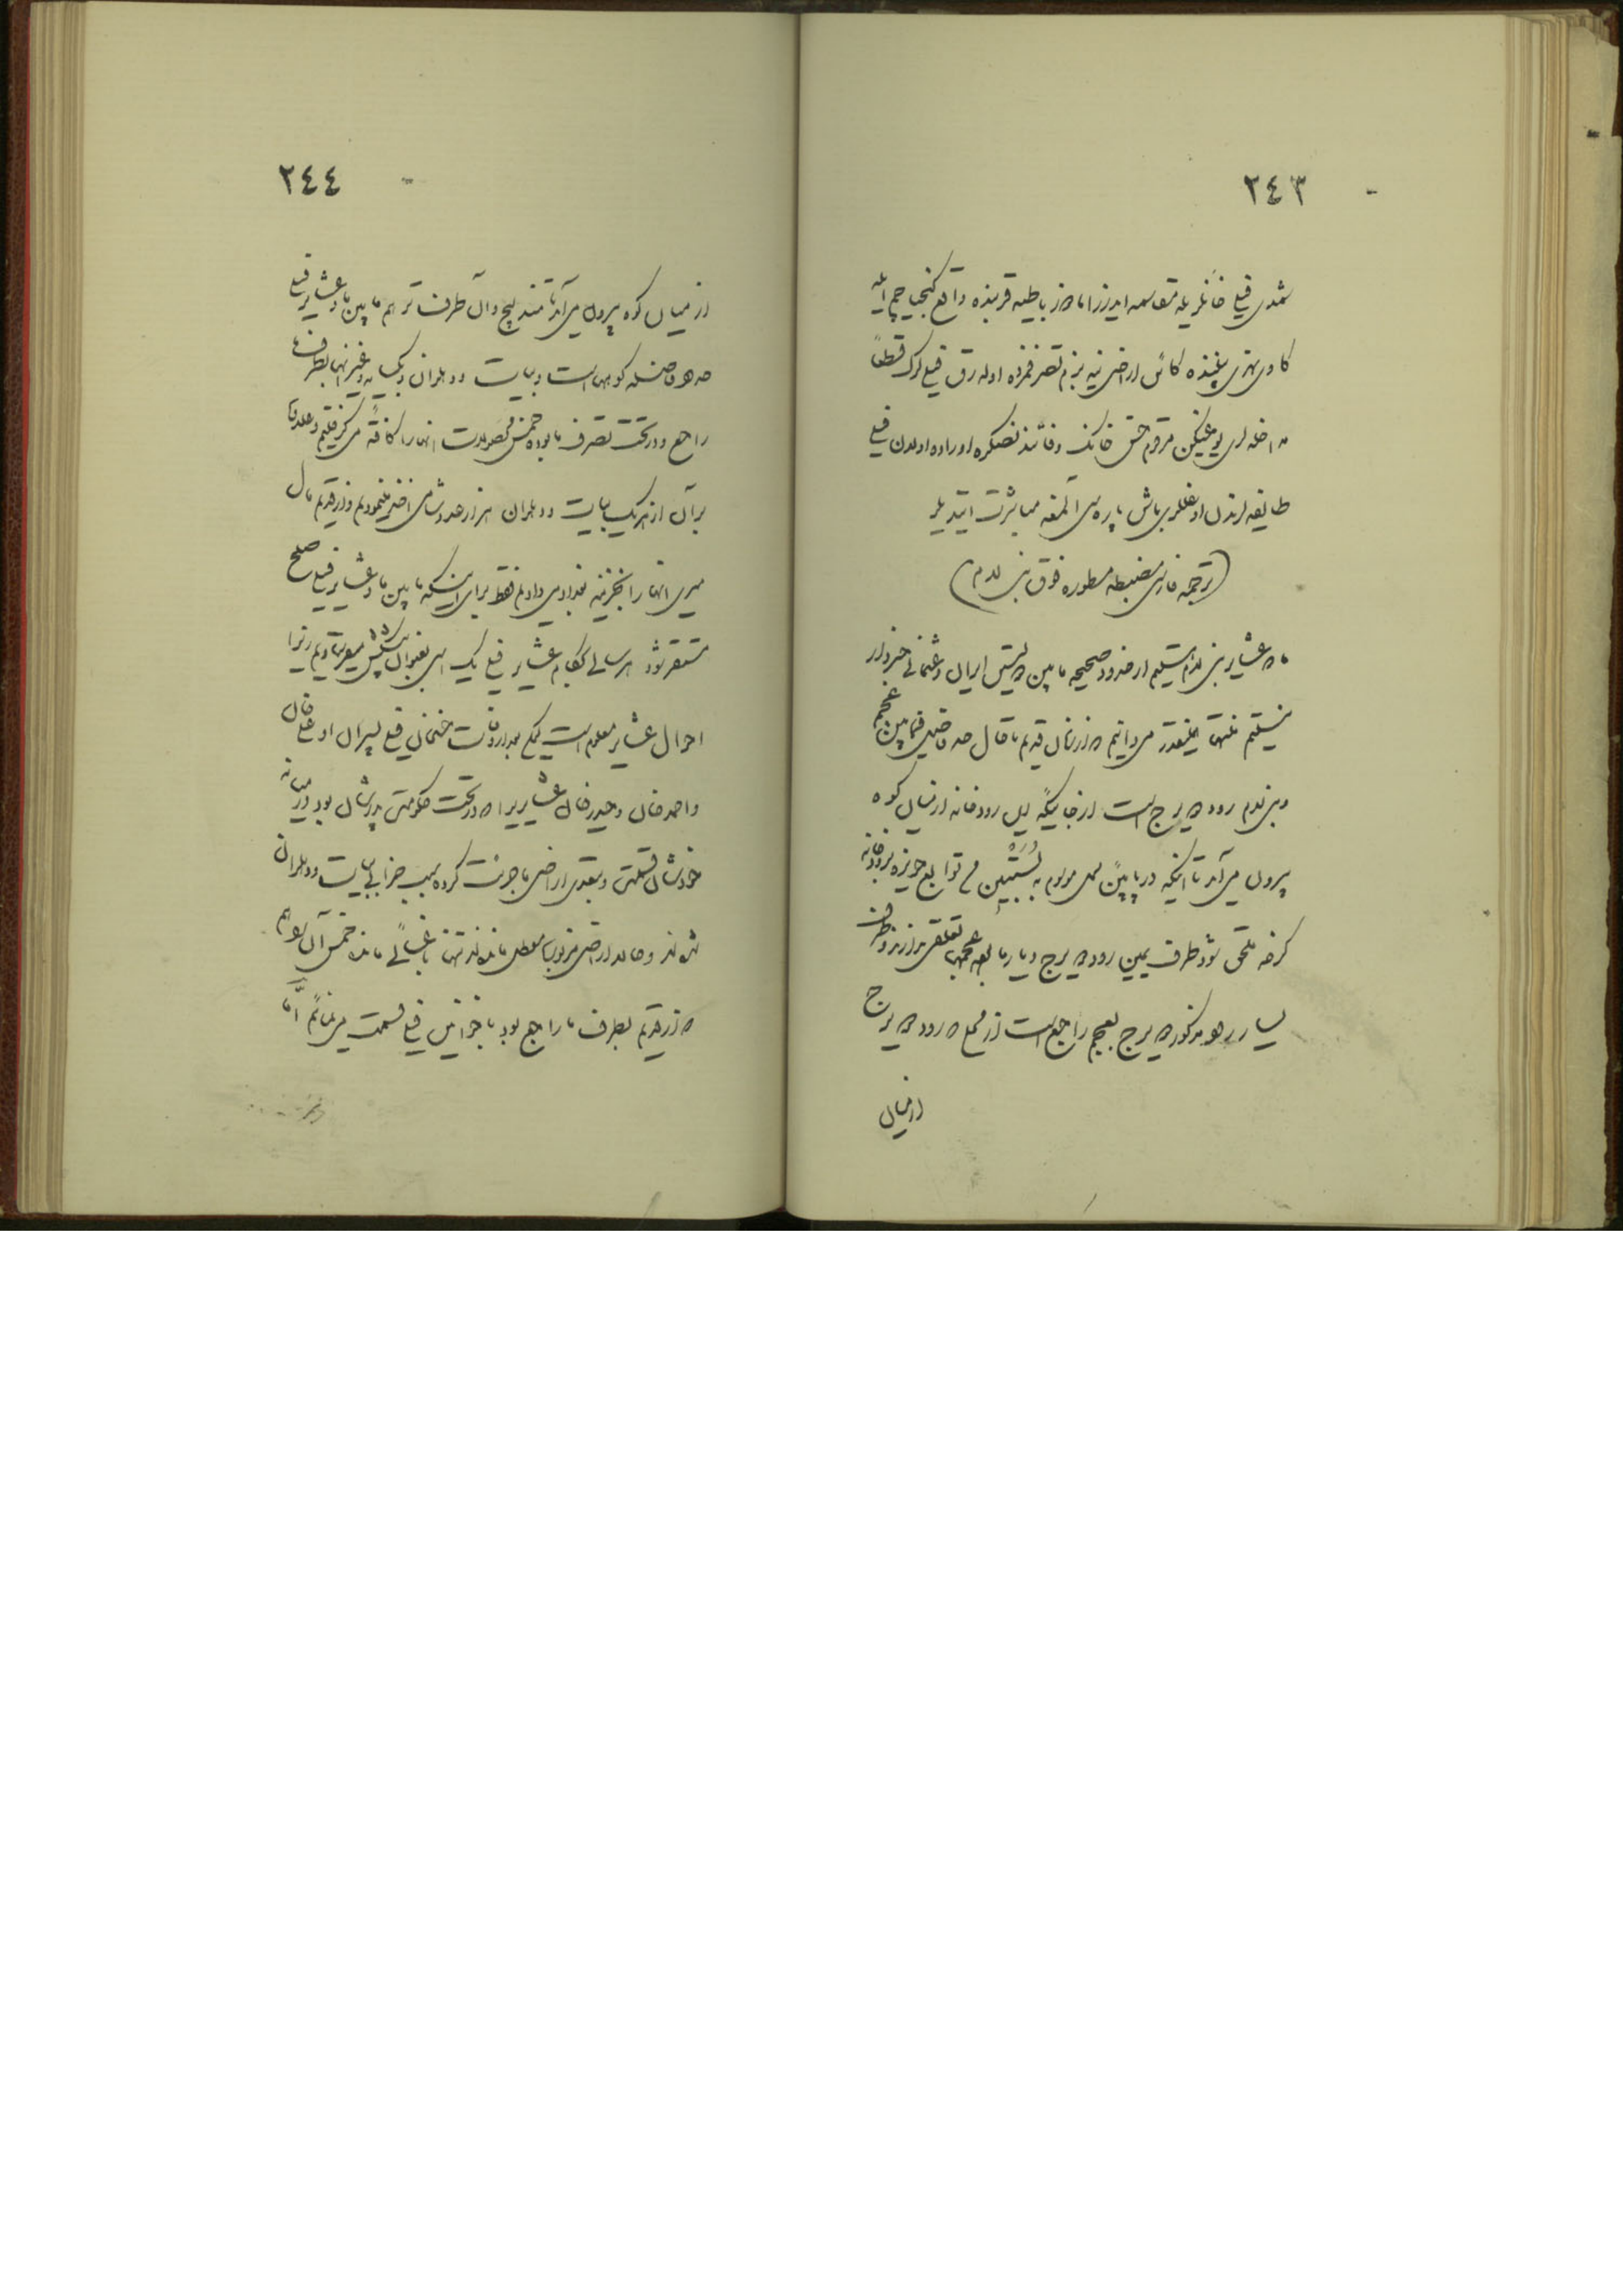 ٢٤٣
شمدی فیلی خانلریله مقاسمه ایدرز اما دز باطیه قربنده واقع کنجیا چم ایله
کاوی نهری بیننده کائن اراضی ینه بزم تصرفمزده اوله رق فیلی لرک قطعا
مداخله لری یوغیکن مرقوم حسن خانک وفاتندنصکره اوراده اولدن فیلی
طایفه لرندن اوغللری باش پاره سی آلمغه مباشرت ایتدیلر
(ترجمه فارسی مضبطه مسطوره فوق بنی لام)
ما که عشایر بنی لام هستیم از حدود صحیحه مابین دولتین ایران و عثمانی خبردار
نیستیم منتها اینقدر میدانیم که از زمان قدیم تا حال حد فاصل فیمابین عجم
و بنی لام رود دویرج است از جائیکه این رودخانه از میان کوه
بیرون میآید تا آنکه در پایین محل موسوم به بستین من توابع حویزه برودخانه
کرخه ملحق شود طرف یمین رود دویرج دیار ما بوده عجمها تعلقی ندارند و طرف
یسار رود مذکور دویرج بعجم راجع است از محلی که رود دویرج
از میان
٢٤٤
از میان کوه بیرون میآید تا مندلیج و آن طرف تر هم مابین ما و عشایر فیلی
حد فاصل کوههاست و بیات و دهلران و بکسایه و غیر اینها بطرف ما
راجع و در تحت تصرف ما بوده خمس محصولات اینها را کافة میگرفتیم و علاوة
بر آن از هر یک بیات و دهلران هزار عدد شامی اخذ مینمودیم و از قدیم مال
میری اینها را بخزینه بغداد میدادیم فقط برای اینکه مابین ما و عشایر فیلی صلح
مستقر شود هر سال بحکام عشایر فیلی یک اسب بعنوان پیشکش میفرستادیم زیرا
احوال عشایر معلوم است لیکن بعد از وفات حسن خان فیلی پسران او علی خان
و احمد خان و حیدر خان عشایریرا که در تحت حکومت پدرشان بود در میانه
خودشان قسمت و بتعدی اراضی ما جرئت کرده سبب خرابی بیات و دهلران
شده اند و حالا اراضی مزبوره معطل مانده اند تنها باغسائی مانده خمس آن را هم
که از قدیم بطرف ما راجع بود با خوانین فیلی قسمت مینمائیم اما